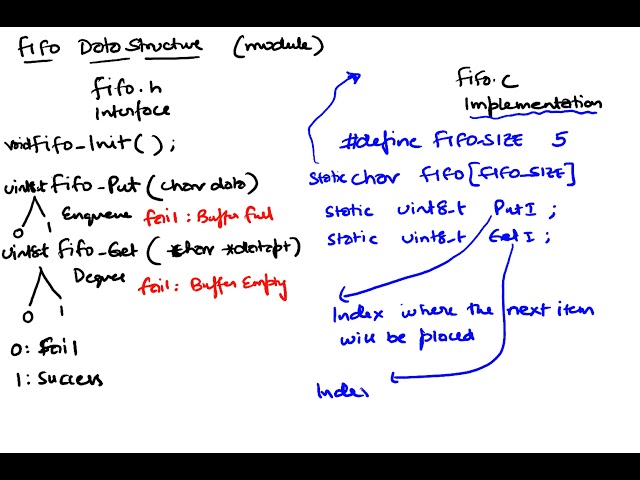 FIFO Data Structure (module)
fifo.h
Interface
void fifo_Init();
uint8_t fifo_Put (char data)
Enqueue fail: Buffer full
0 1
uint8_t fifo_Get (char *datapt)
Deque fail: Buffer Empty
0 1
0: fail
1: Success
fifo.c
Implementation
#define FIFO_SIZE 5
Static char FIFO[FIFO_SIZE]
static uint8_t PutI ;
static uint8_t GetI ;
Index where the next item
will be placed
Index